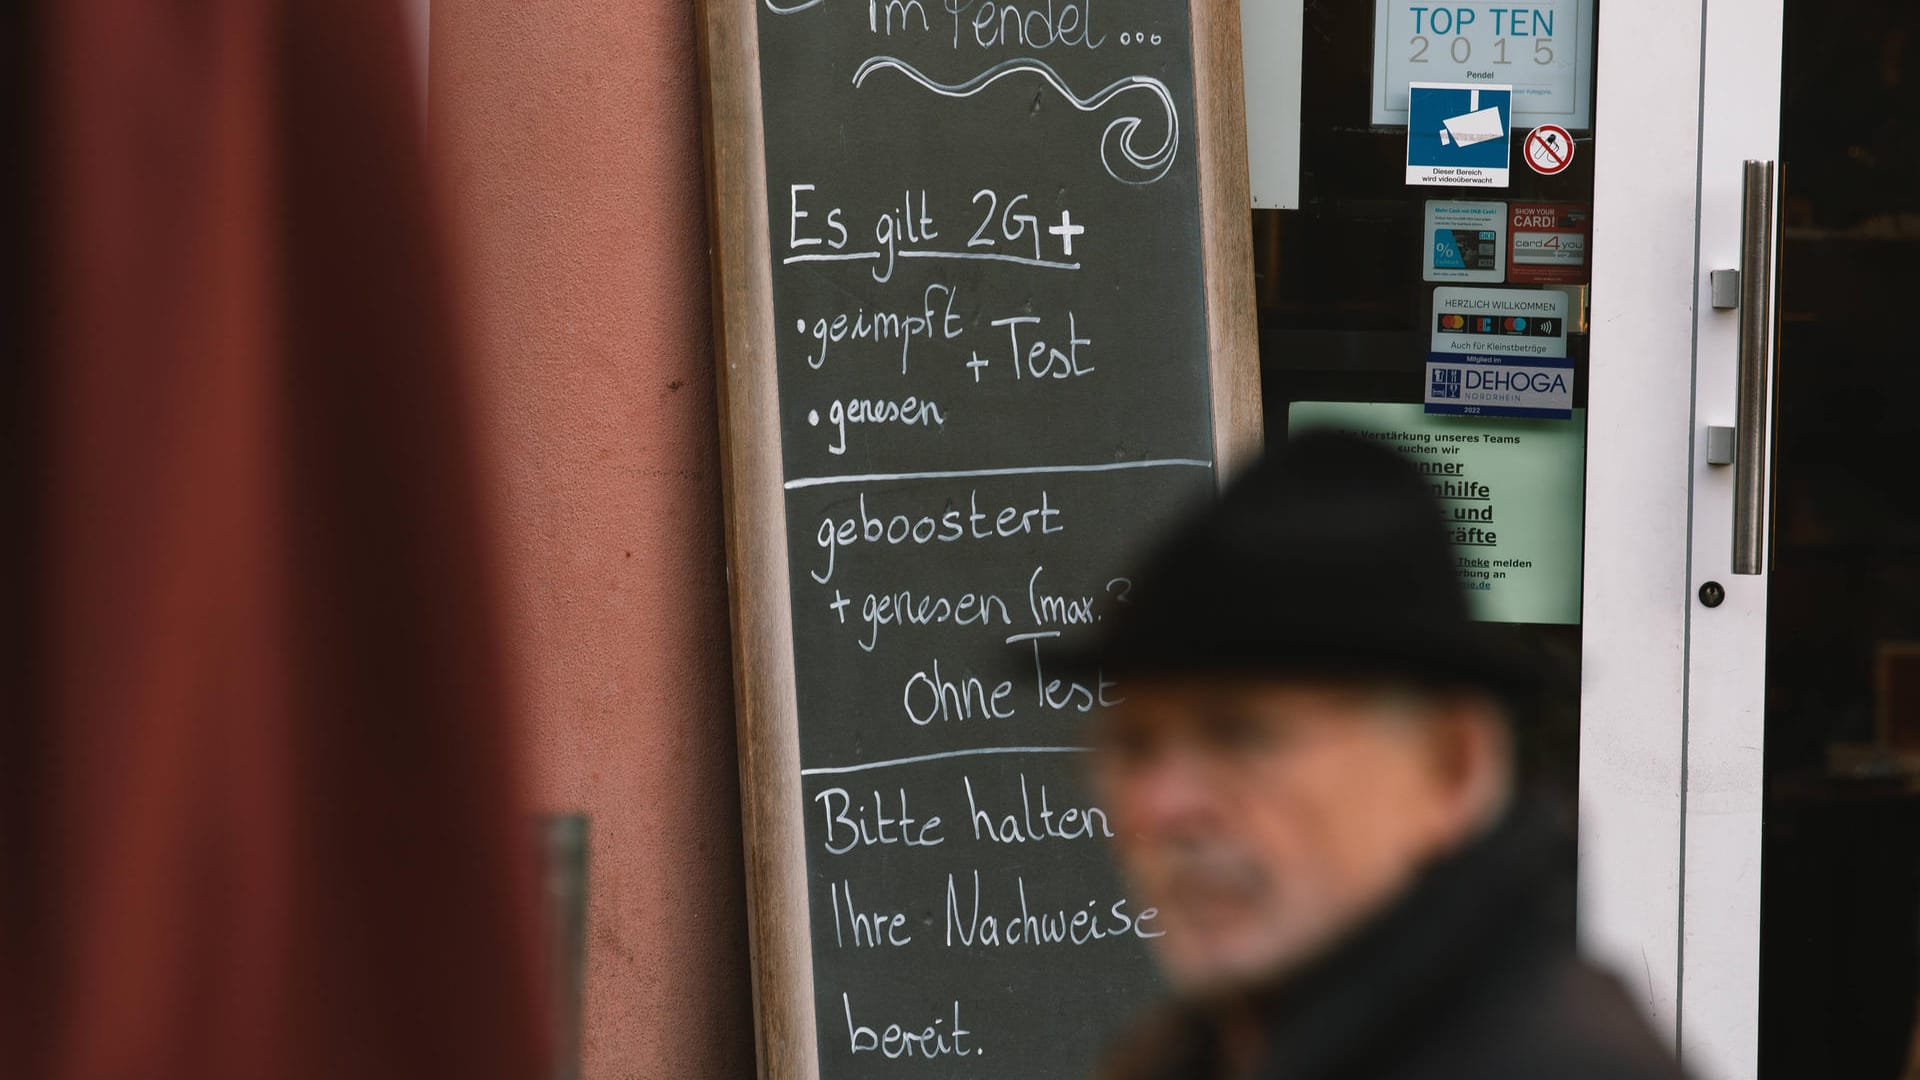 im Pendel...
Es gilt 2G+
• geimpft
+ Test
• genesen
geboostert
+ genesen (max.
Ohne Test
Bitte halten
Ihre Nachweise
bereit.
TOP TEN
2015
Pendel
Dieser Bereich
wird videoüberwacht
SHOW YOUR
CARD!
card4you
%
HERZLICH WILLKOMMEN
Auch für Kleinstbeträge
Mitglied im
DEHOGA
NORDRHEIN
2022
Verstärkung unseres Teams
suchen wir
und
Theke melden
an